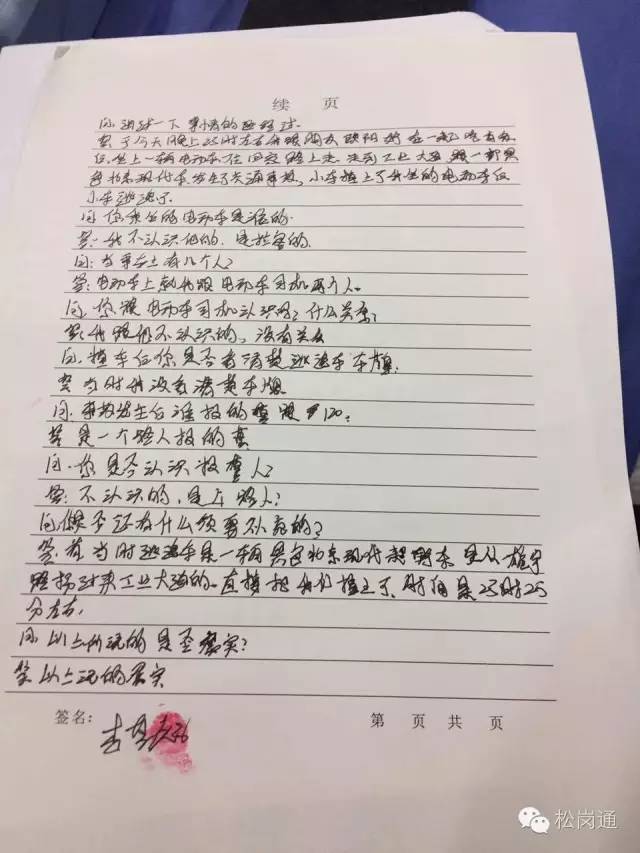 续 页
问：讲述一下事情的经过
答：于今天晚上23时左右我跟朋友 在一起吃
坐上一辆电动车在 路上走 工业大道 跟一部黑
色北京现代车发生了交通事故，小车撞上了我坐的电动车后
小车逃逸了
问：你乘坐的电动车是谁的
答：我不认识他的，是拉客的
问：当事车上有几个人？
答：电动车上就我跟电动车司机两个人
问：你跟电动车司机认识吗？什么关系？
答：我跟他不认识的，没有关系
问：撞车后你是否看清楚逃逸车车牌
答：当时我没看清楚车牌
问：事故发生后谁报的警跟120？
答：是一个路人报的警
问：你是否认识报警人？
答：不认识的，是 路人？
问：你是否还有什么须要补充的？
答：有 当时逃逸车是一辆黑色北京现代 车 是从
路拐过来工业大道的，直接把我们撞上了，时间是23时25
分左右
问：以上所说的是否属实？
答：以上说的属实
签名：
第 页 共 页
松岗通